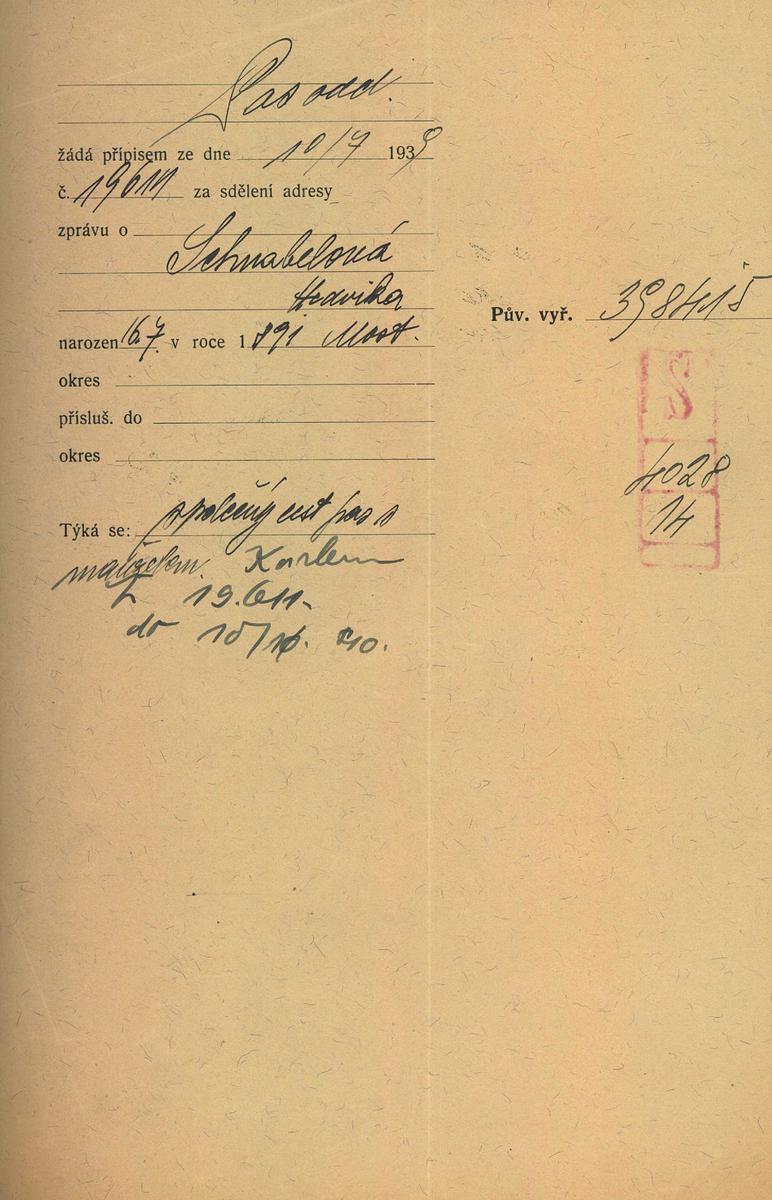 Pas odd.
žádá přípisem ze dne 10/7 1939
č. 19611 za sdělení adresy
zprávu o
Schnabelová
Hedvika
narozen 16.7. v roce 1891 Most.
okres
přísluš. do
okres
Týká se: společný cest pas s
manželem. Karlem
č 19.611.
do 15/ 40.
Pův. vyř. 398415
S
4028
14